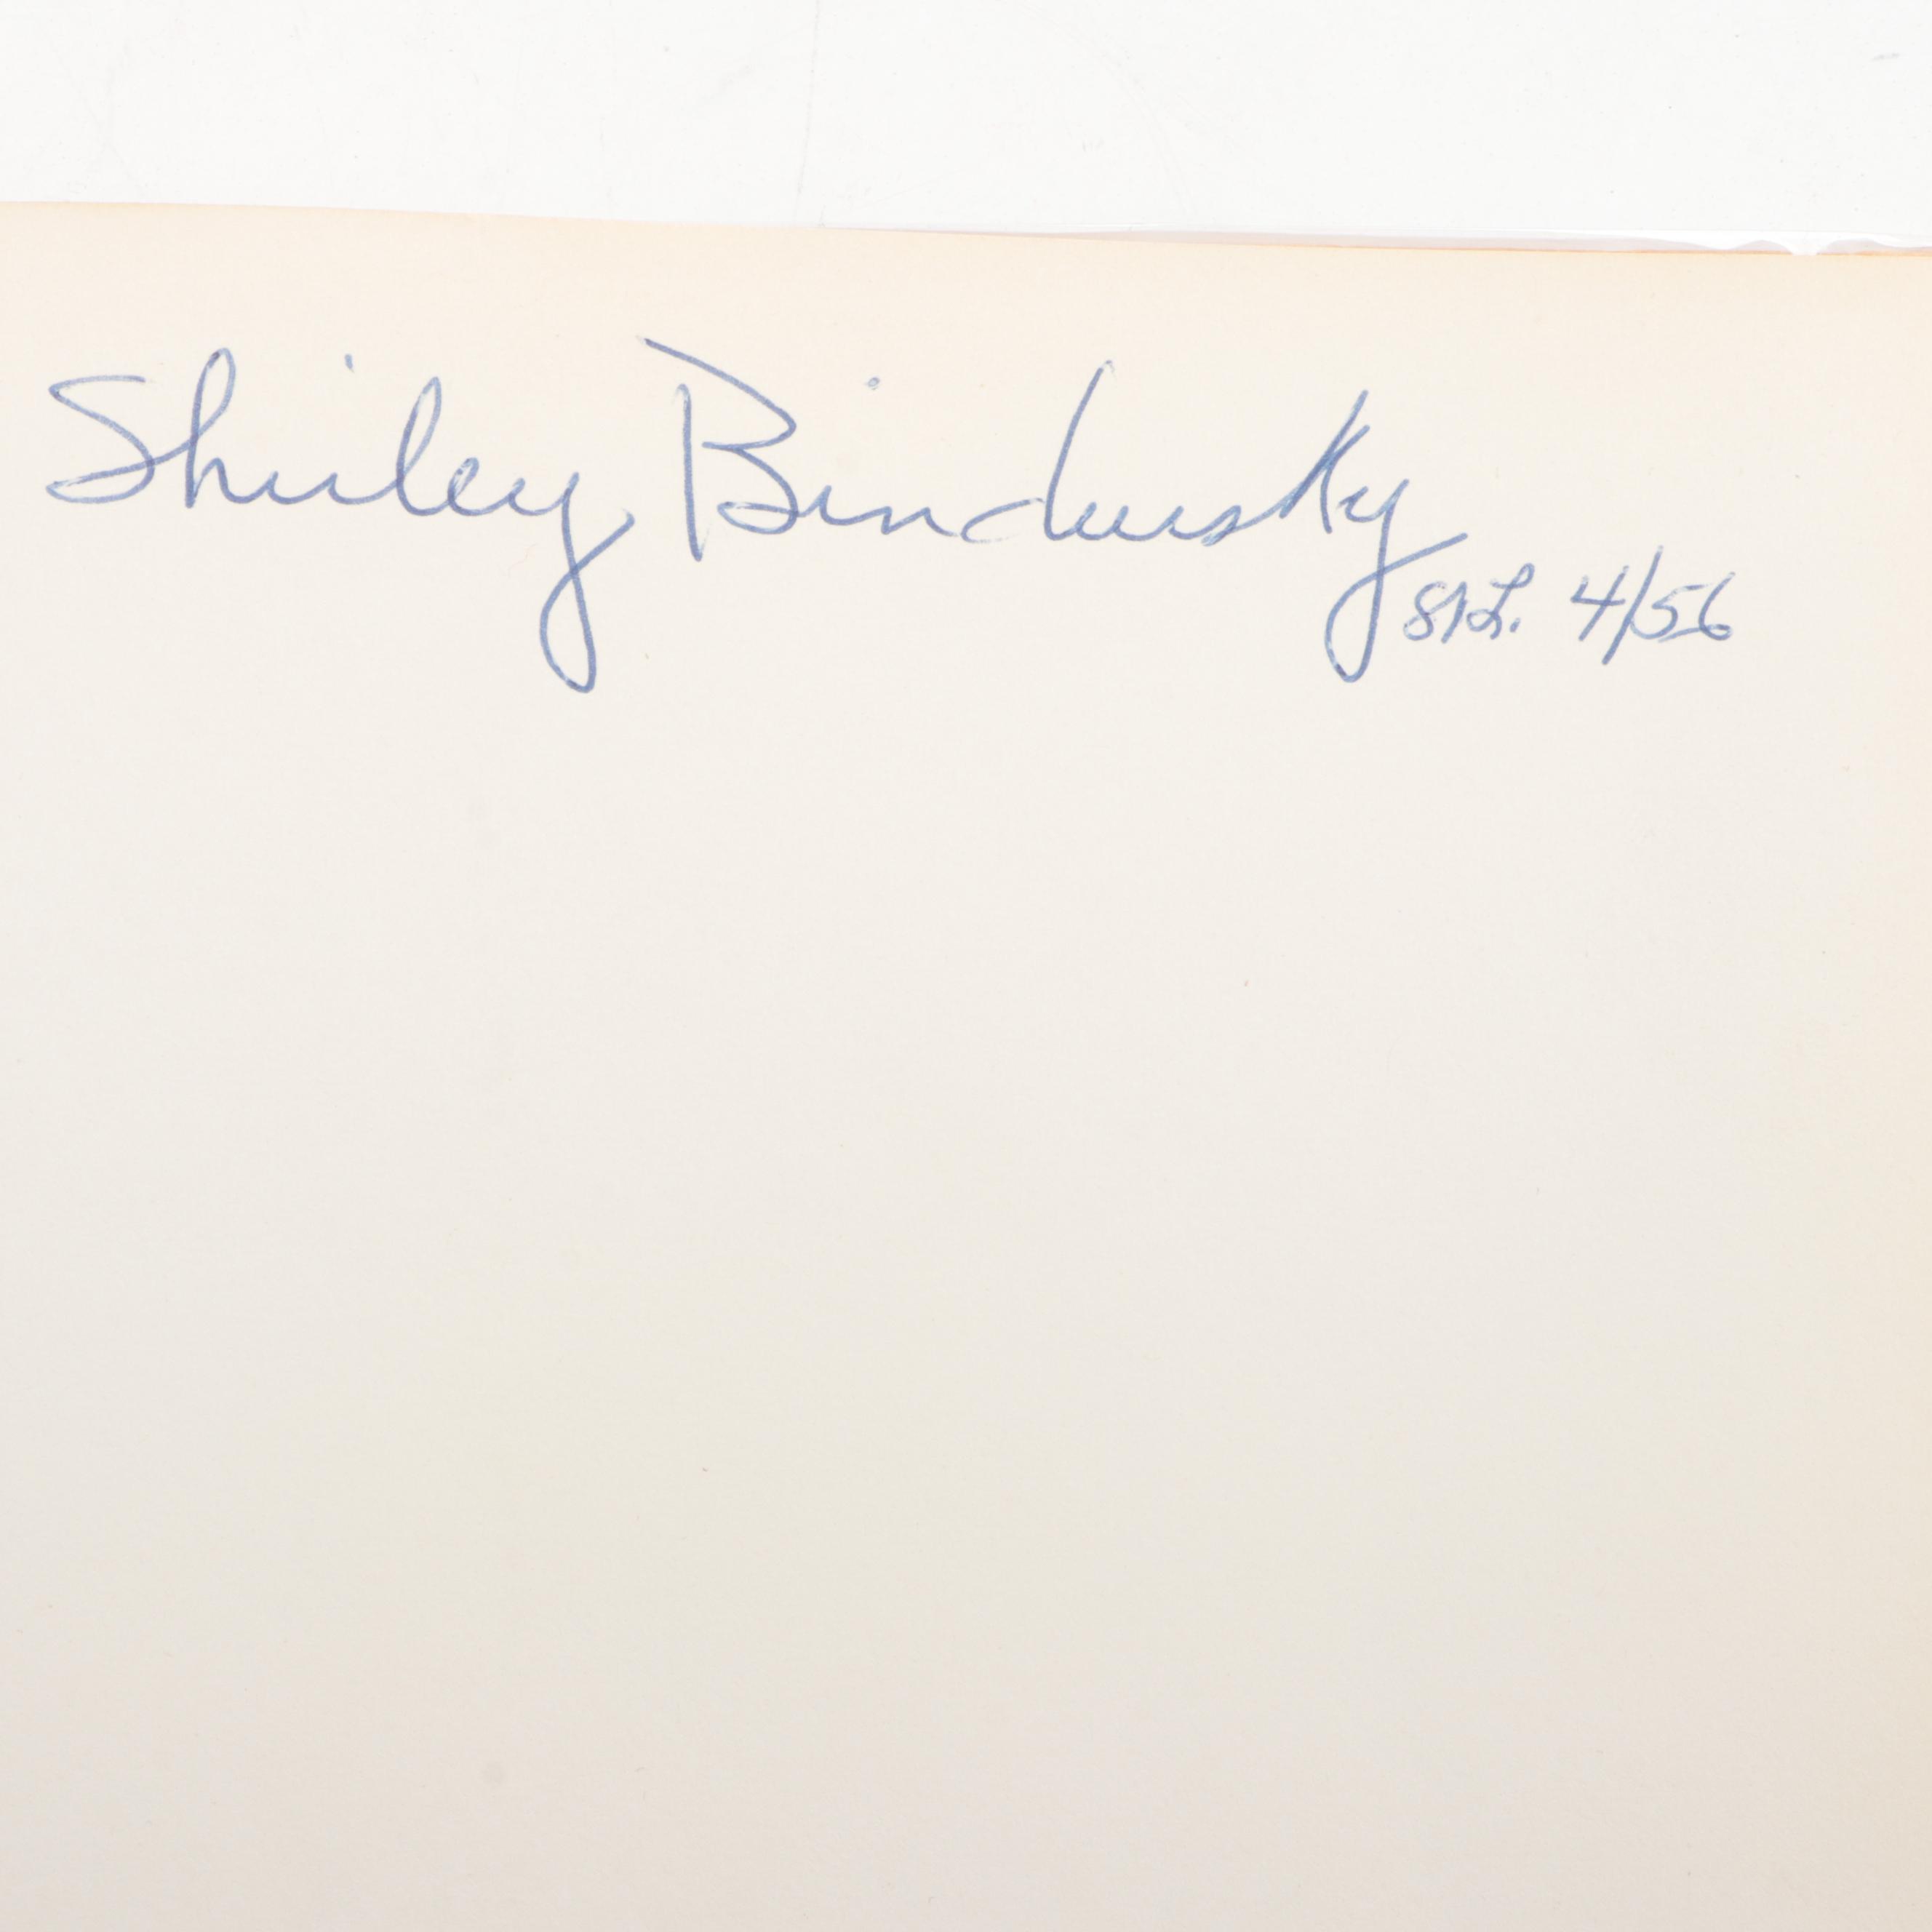 Shirley Bindursky
4/56